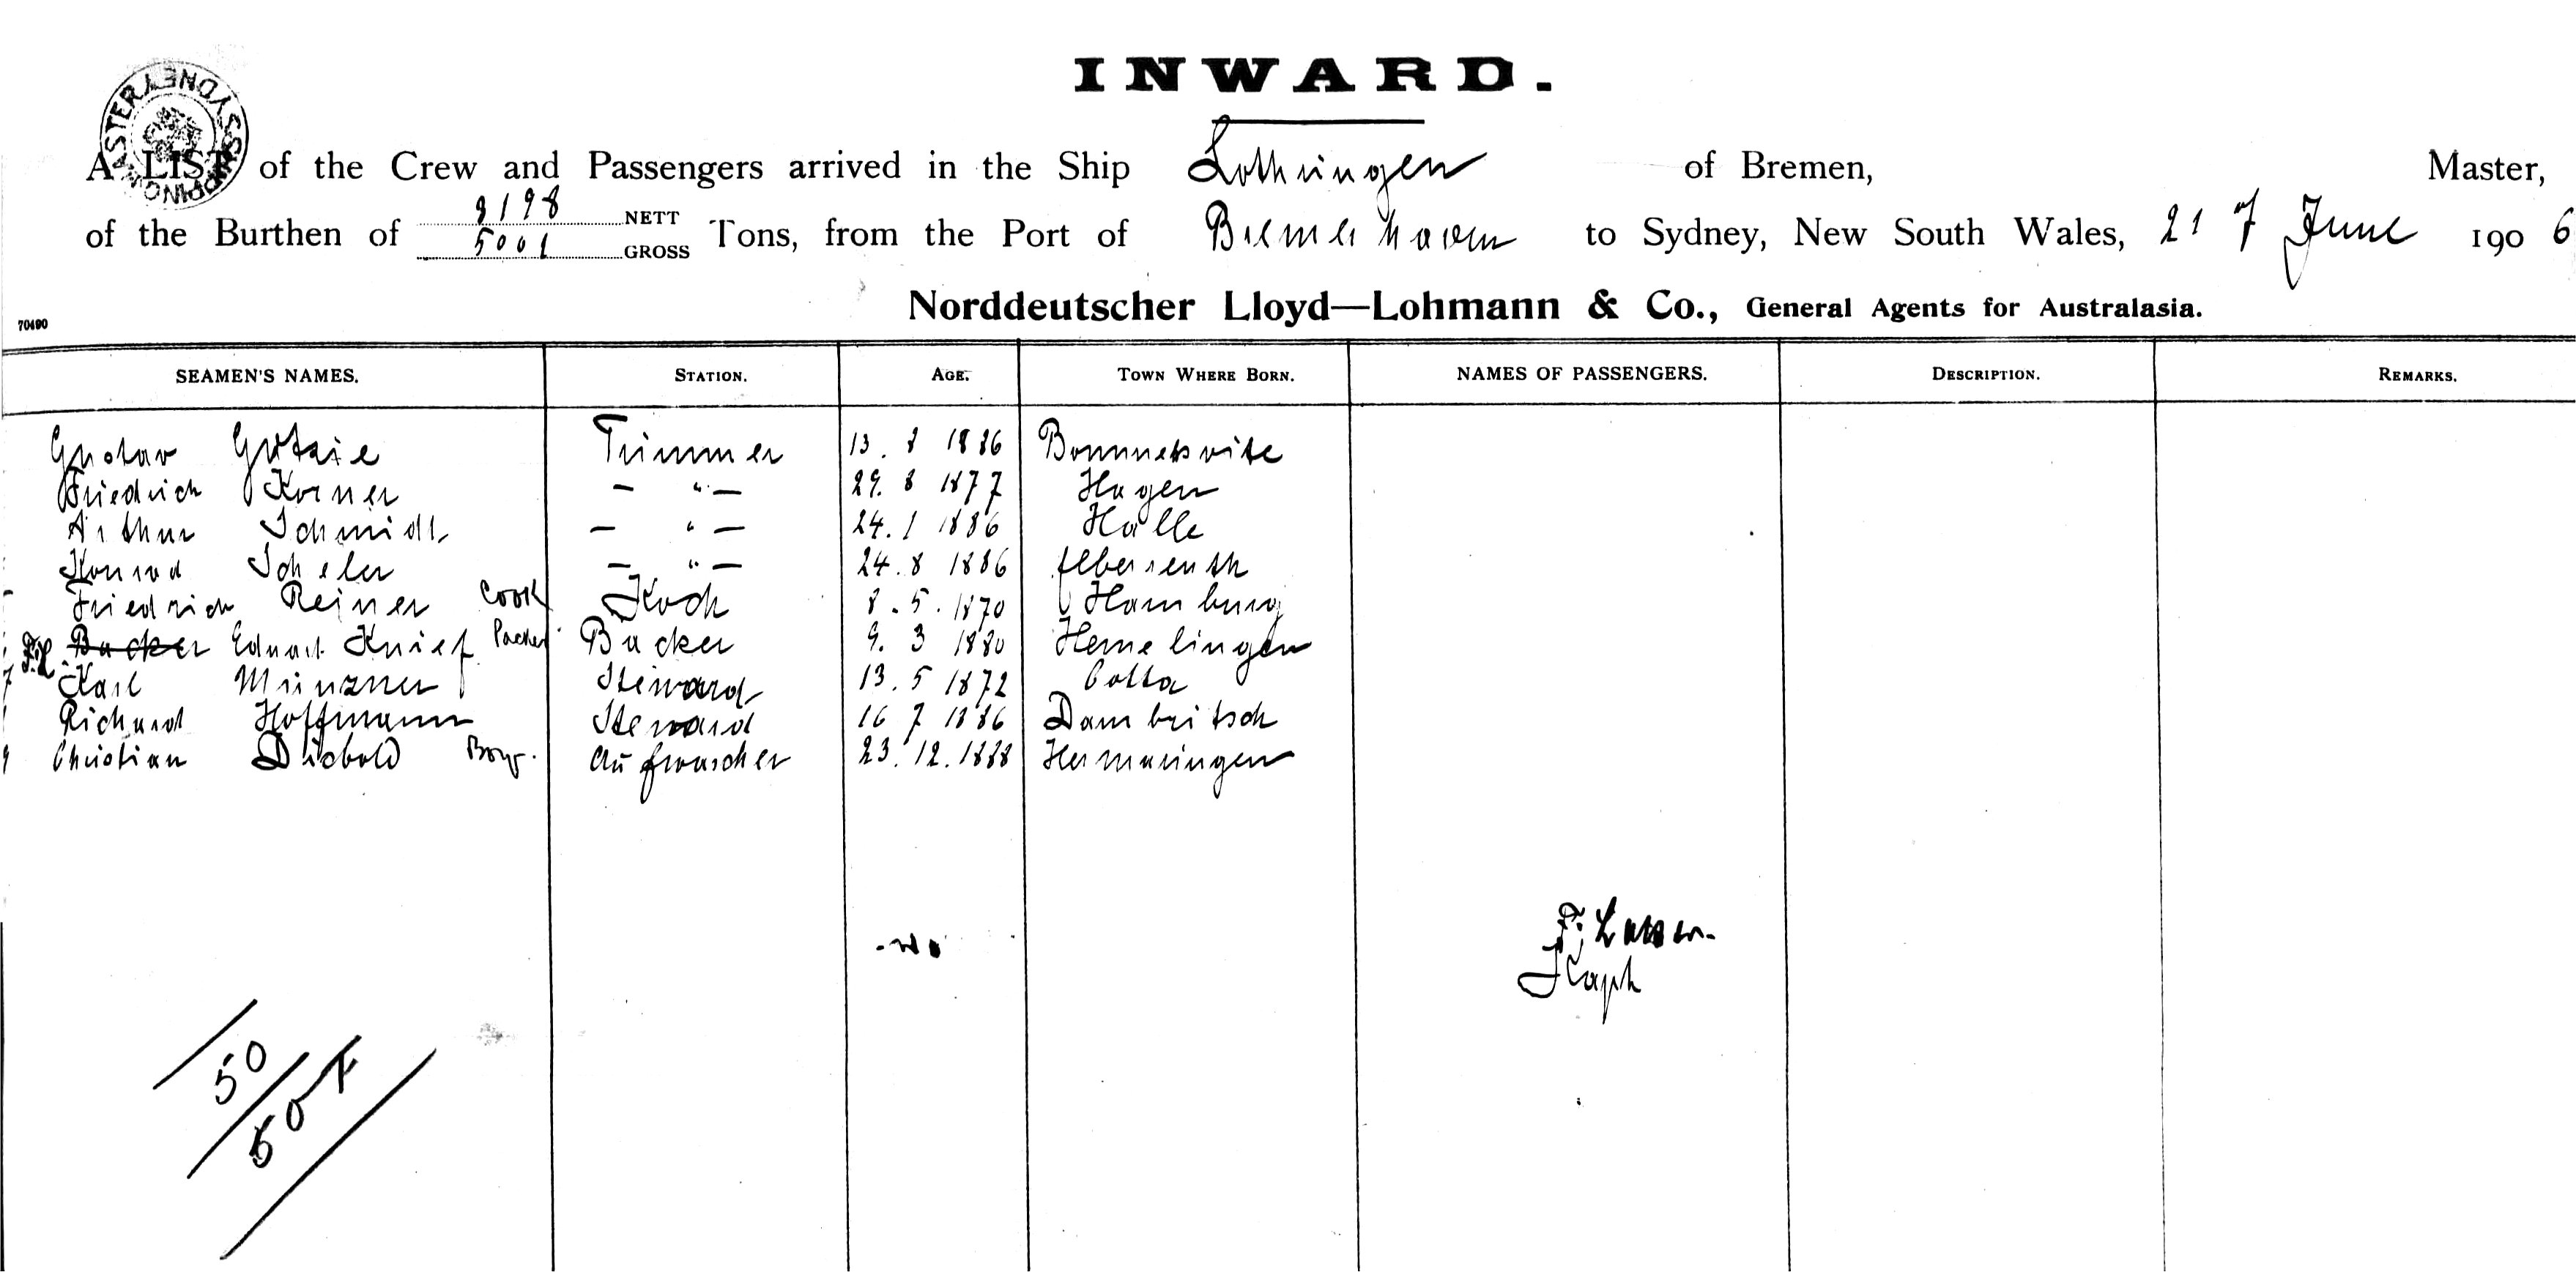 INWARD.
SHIPPING MASTER SYDNEY
A LIST of the Crew and Passengers arrived in the Ship Lothringen of Bremen, Master,
of the Burthen of 3198 NETT 5001 GROSS Tons, from the Port of Bremerhaven to Sydney, New South Wales, 21 of June 1906
Norddeutscher Lloyd—Lohmann & Co., General Agents for Australasia.
70490
SEAMEN'S NAMES. STATION. AGE. TOWN WHERE BORN. NAMES OF PASSENGERS. DESCRIPTION. REMARKS.
Gustav Trimmer 13. 8 1886
Friedrich Korner – " – 29. 8 1877 Hagen
Arthur Schmidt – " – 24. 1 1886 Halle
Konrad Scheler – " – 24. 8 1886
Friedrich Reiner Cook Koch 8. 5. 1870 Hamburg
Backer Eduart Knief Bäcker 9. 3 1880 Hemelingen
7 Karl Münzner Steward 13. 5 1872 Cotta
Richard Hoffmann Steward 16 7 1886 Dambritsch
9 Christian Diebold Boy. Aufwascher 23. 12. 1888 Hermaringen
Kaph
50
50